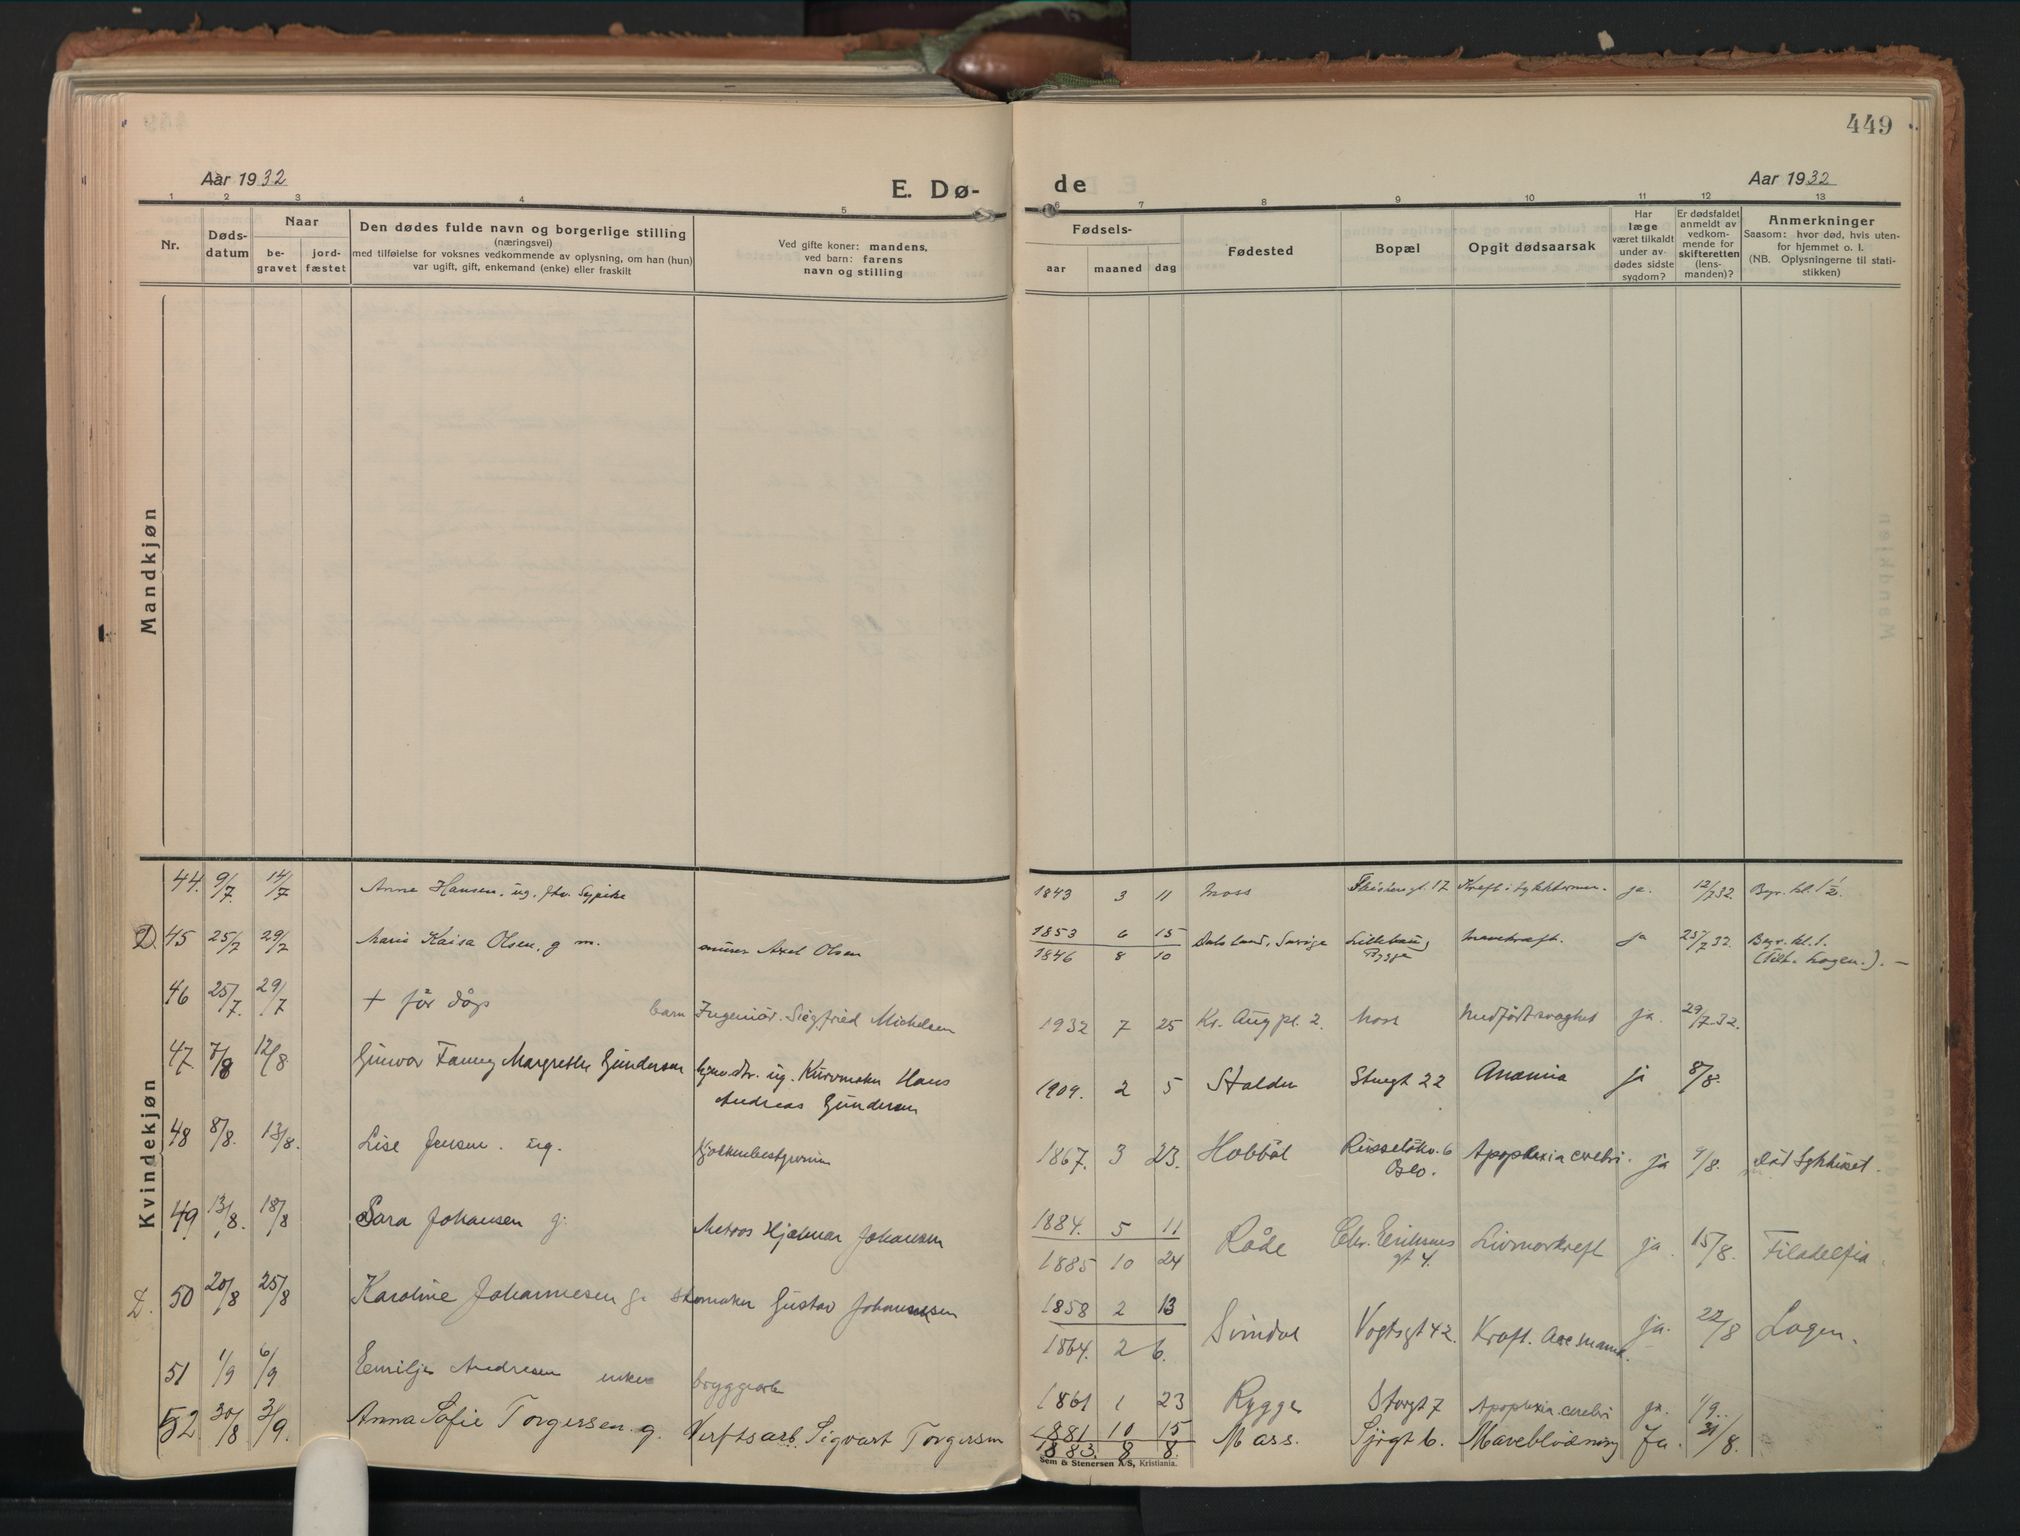 449
Aar 1932
E. Dø-
de
Aar 1932
1 2 3 4 5 6 7 8 9 10 11 12 13
Nr.
Døds-
datum
Naar
be-
gravet
jord-
fæstet
Den dødes fulde navn og borgerlige stilling
(næringsvei)
med tilføielse for voksnes vedkommende av oplysning, om han (hun)
var ugift, gift, enkemand (enke) eller fraskilt
Ved gifte koner: mandens,
ved barn: farens
navn og stilling
Fødsels-
aar maaned dag
Fødested
Bopæl
Opgit dødsaarsak
Har
læge
været tilkaldt
under av-
dødes sidste
sygdom?
Er dødsfaldet
anmeldt av
vedkom-
mende for
skifteretten
(lens-
manden)?
Anmerkninger
Saasom: hvor død, hvis uten-
for hjemmet o. l.
(NB. Oplysningerne til stati-
stikken)
Mandkjøn
Kvindekjøn
44. 9/7. 14/7 Anne Hansen, ug. fhv. Sypike 1843 3 11 Moss 17 Kreft i ja. 12/7 32. Bgr. kl. 1 1/2.
D. 45 25/7 29/7 Marie Kaisa Olsen, g m. murer Axel Olsen 1853 6 15 Dalsland, Sverige Lillehaug ja 25/7 32. Bgr. kl. 1.
1846 8 10 Rygge
46 25/7. 29/7 + før dåp barn Ingeniör Siegfried Michelsen 1932 7 25 Kr. Aug pl. 2. Moss Medfödt svaghet ja. 29/7 32.
47. 7/8 12/8 Gunvor Fanny Margrethe Gundersen ug. Kurvmaker Hans
Andreas Gundersen 1909. 2 5 Halden Storgt 22 Anæmia ja 8/8.
48 8/8. 13/8. Lise Jensen. ug. Kjøkkenbestyrerin 1867. 3 23. Hobböl 6
Oslo. Apoplexia cerebri. ja 9/8. död Sykhuset.
49 13/8. 18/8 Sara Johansen g. Matros Hjalmar Johansen 1884. 5 11 Råde Chr. Eriksens
gt 4. Livmorkreft ja. 15/8. Filadelfia.
1885 10 24
D. 50 20/8 25/8 Karoline Johannesen g. skomaker Gustav Johannesen 1858 2 13 Svindal Vogtsgt 42. Kreft. ja. 22/8 Logen.
1864. 2 6.
51 1/9 6/9 Emilje Andresen enke bryggearb 1861 1 23 Rygge Storgt 7 Apoplexia cerebri ja. 1/9.
52. 30/8 3/9. Anna Sofie Torgersen. g. Verftsarb. Sigvart Torgersen 1881 10 15 Moss. Sjøgt 6. Maveblødning Ja. 31/8.
1883. 8 8.
Sem & Stenersen A/S, Kristiania.